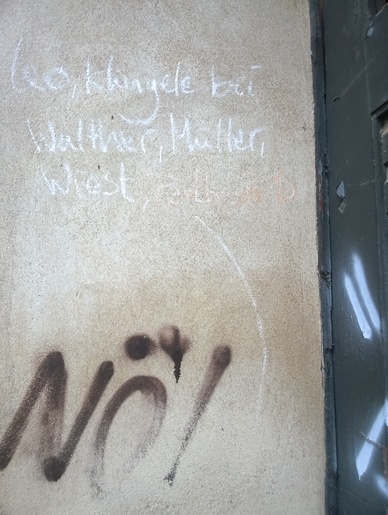 Leo, klingele bei
Walther, Müller,
Wiest,
NÖ!